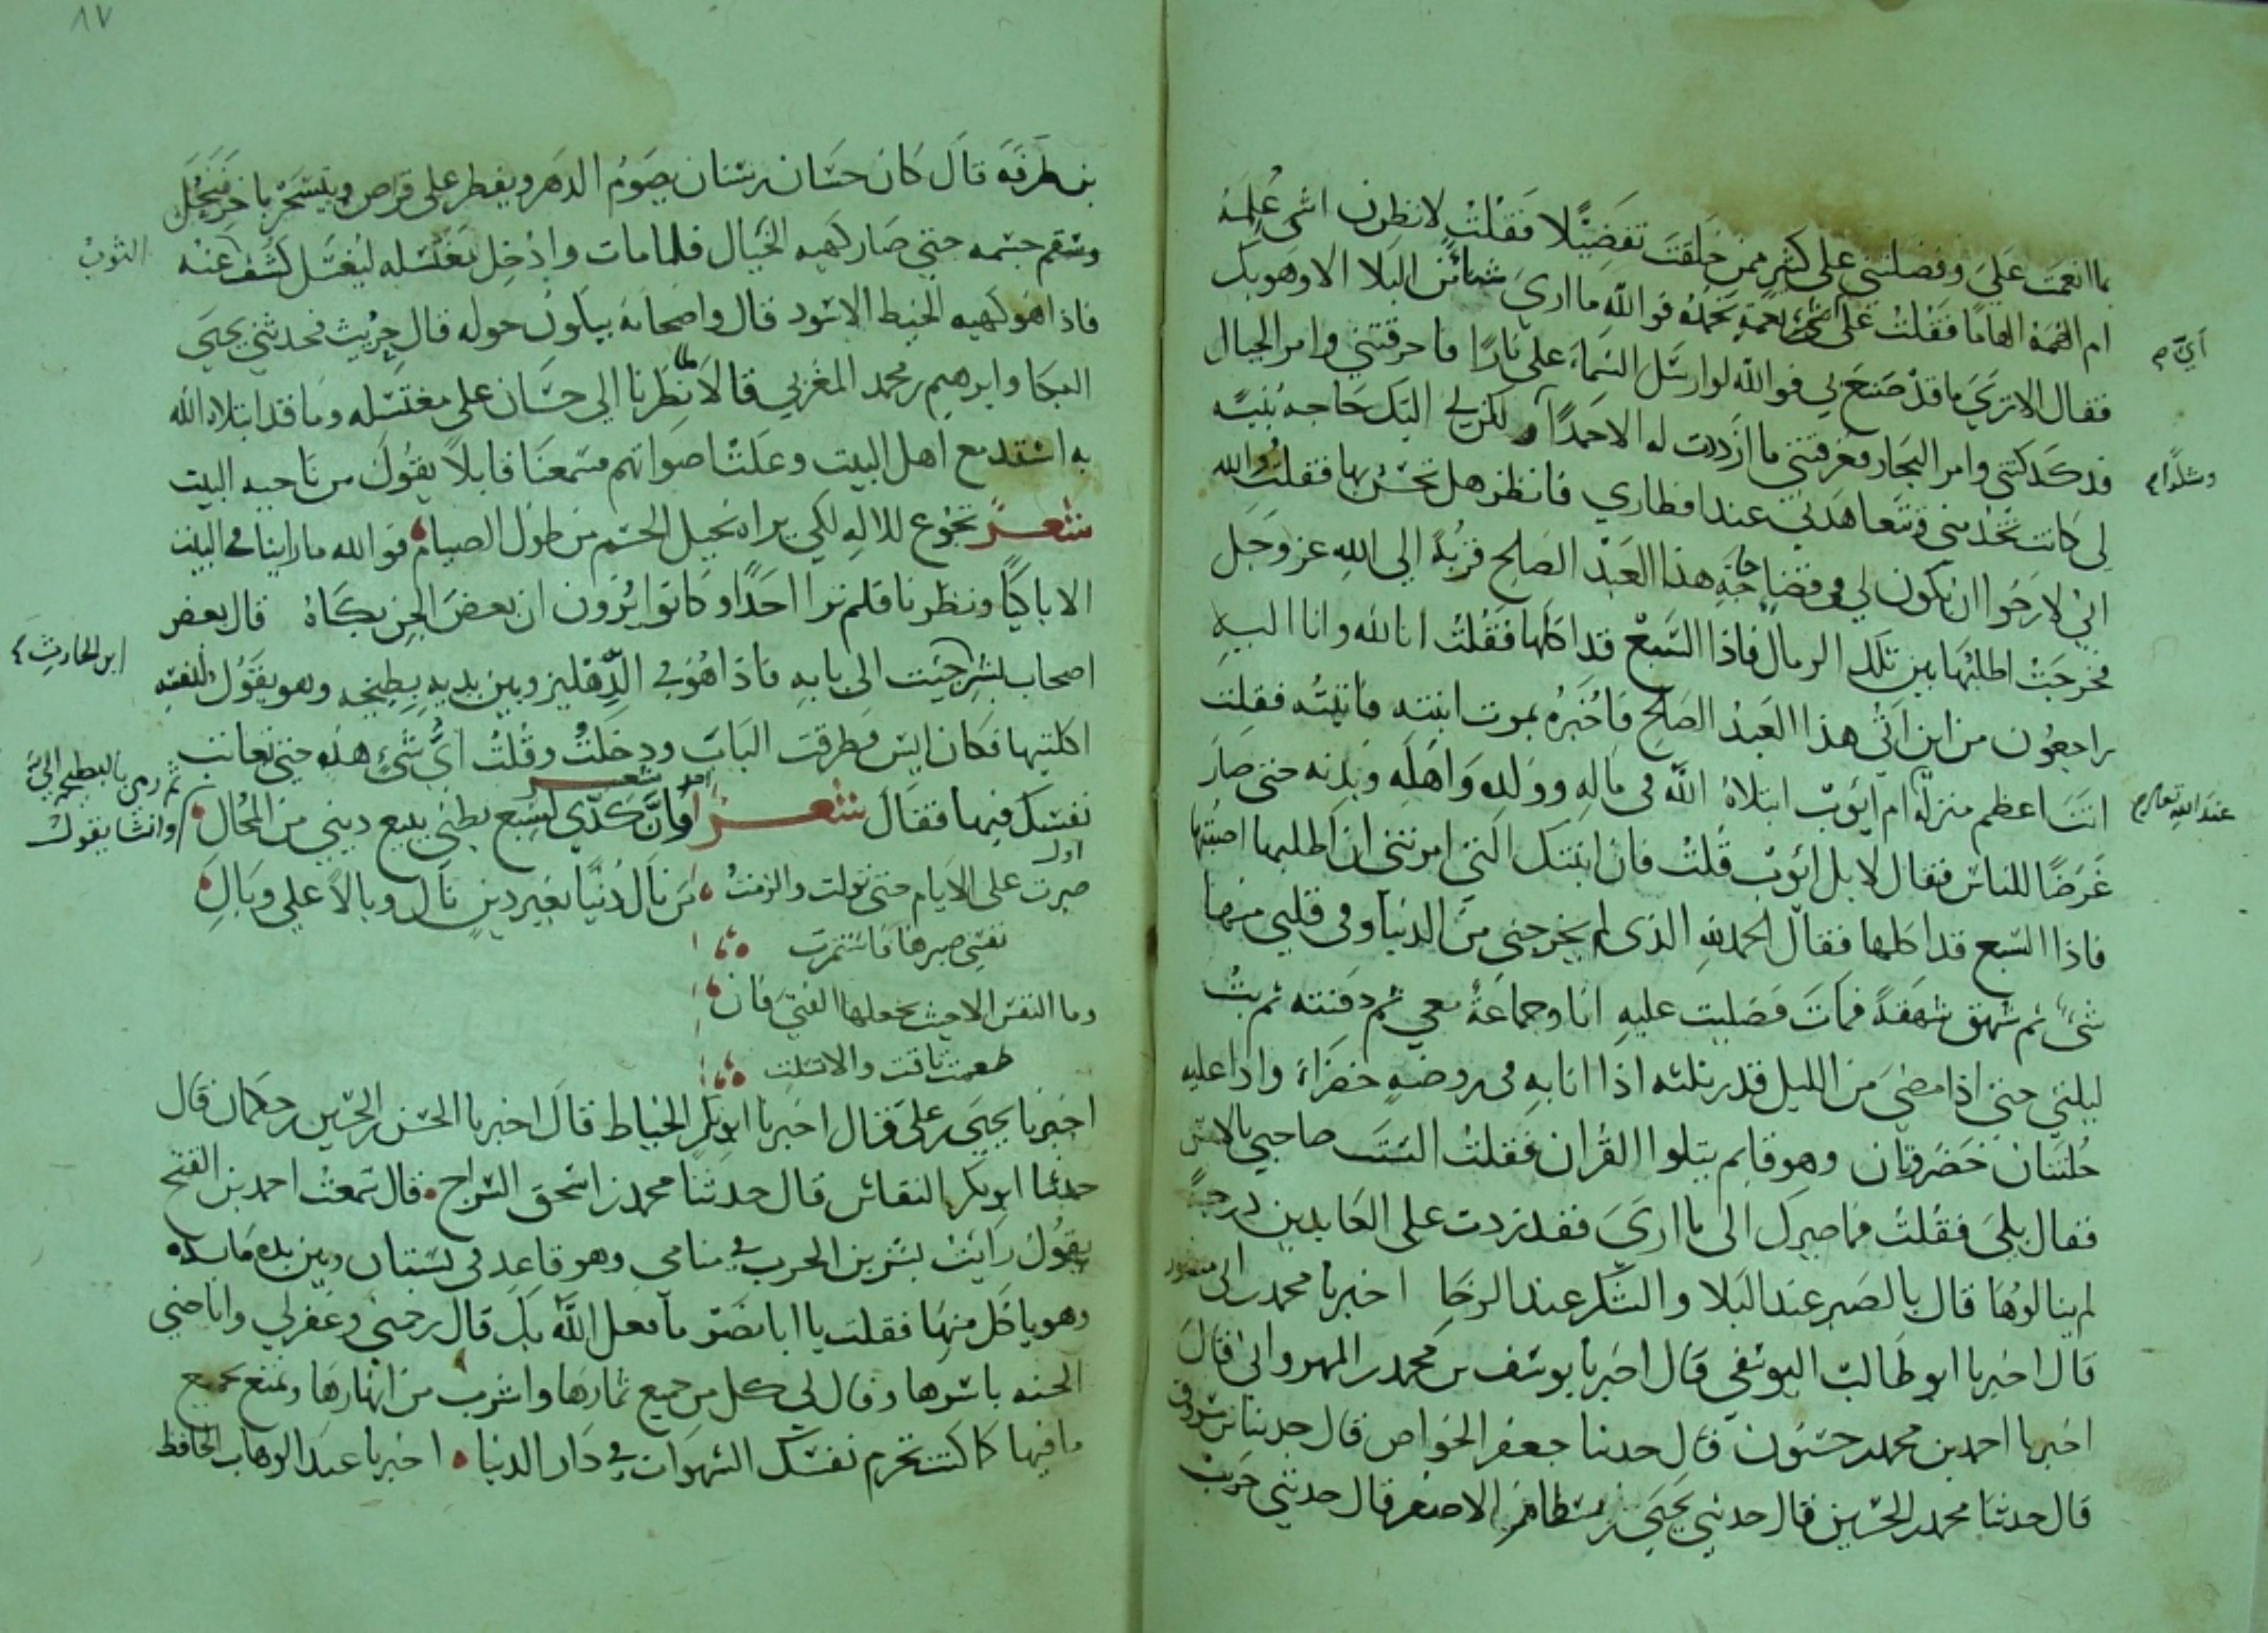 بما انعمت علي وفضلتني على كثير ممن خلقت تفضيلا فقلت لانظرن اشي علمه
ام الهمه الهاما فقلت على اي نعمه تحمده فوالله ما ارى شيا من البلا الا وهو بك
أيّ م
فقال الا ترى ما قد صنع بي فوالله لو ارسل السماء علي نارا فاحرقتني وامر الجبال
فدكدكتني وامر البحار فغرقتني ما ازددت له الا حمدا و لكن لي اليك حاجه بنيه
وشكرا م
لي كانت تخدمني وتتعاهدني عند افطاري فانظر هل تحس بها فقلت والله
اني لارجوا ان يكون لي في قضا حاجة هذا العبد الصالح قربة الى الله عز وجل
فخرجت اطلبها بين تلك الرمال فاذا السبع قد اكلها فقلت انا لله وانا اليه
راجعون من اين اتي هذا العبد الصالح فاخبره بموت ابنته فاتيته فقلت
انت اعظم منزلة ام ايوب ابتلاه الله في ماله وولده واهله وبدنه حتى صار
عند الله تعالى م
غرضا للناس فقال لا بل ايوب قلت فان ابنتك التي امرتني ان اطلبها اصبتها
فاذا السبع قد اكلها فقال الحمد لله الذى لم يخرجني من الدنيا وفى قلبي منها
شئ ثم شهق شهقة فمات فصليت عليه انا وجماعة معي ثم دفنته ثم بت
ليلتي حتى اذا مضى من الليل قدر ثلثه اذا انا به في روضه خضراء واذا عليه
حلتان خضروان وهو قايم يتلوا القران فقلت الست صاحبي بالامس
فقال بلى فقلت فما صيرك الى ما ارى فقد زدت على العابدين درجة
لم ينالوها قال بالصبر عند البلا والشكر عند الرخا اخبرنا محمد بن ابى منصور
قال اخبرنا ابو طالب اليوسفي قال اخبرنا يوسف بن محمد المهروانى قال
اخبرنا احمد بن محمد حسنون قال حدثنا جعفر الخواص قال حدثنا بن مسروق
قال حدثنا محمد بن الحسين قال حدثني يحيى بن بسطام الاصفر قال حدثني حريث
٨٧
بن طرفه قال كان حسان بن سنان يصوم الدهر ويفطر على قرص ويتسحر باخر فنحل
وسقم جسمه حتى صار كهيه الخيال فلما مات وادخل مغتسله ليغسل كشف عنه
الثوب
فاذا هو كهيه الخيط الاسود قال واصحابه يبكون حوله قال حريث فحدثني يحيى
البكا وابرهيم بن محمد المغربي قالا لما نظرنا الى حسان على مغتسله وما قد ابتلاه الله
به استقدمع اهل البيت وعلت اصواتهم سمعنا قايلا يقول من ناحيه البيت
شعر تجوع للاله لكي يراه نحيل الجسم من طول الصيام فوالله ما راينا في البيت
الا باكيا ونظرنا فلم نرا احدا وكانوا يرون ان بعض الجن بكاه قال بعض
اصحاب بشر جيت الى بابه فاذا هو في الدهليز وبين يديه بطيخه وهو يقول لنفسه
ابن الحارث
اكلتيها فكان ايش فطرقت الباب ودخلت وقلت اي شئ هذه حتى تعاتب
نفسك فيها فقال شعر وان كدي لشبع بطني يبيع ديني من المحال
ثم رمى بالبطيخ الي وانشا يقول
صبرت على الايام حتى تولت والزمت من نال دنيا بغير دين نال وبالا على وبال
نفسي صبرها فاستمرت
وما النفس الا حيث يجعلها الفتى فان
طعمت تاقت والا تسلت
اخبرنا يحيى بن علي قال اخبرنا ابو بكر الخياط قال اخبرنا الحسن بن الحسين بن حمكان قال
حدثنا ابو بكر النقاش قال حدثنا محمد بن اسحق السراج قال سمعت احمد بن الفتح
يقول رايت بشر بن الحرث في منامي وهو قاعد في بستان وبين يده مايده
وهو ياكل منها فقلت يا ابا نصر ما فعل الله بك قال رحمني وغفر لي واباحني
الجنه باسرها وقال لي كل من جميع ثمارها واشرب من انهارها وتمتع بجميع
ما فيها كما كنت تحرم نفسك الشهوات في دار الدنيا اخبرنا عبد الوهاب الحافظ